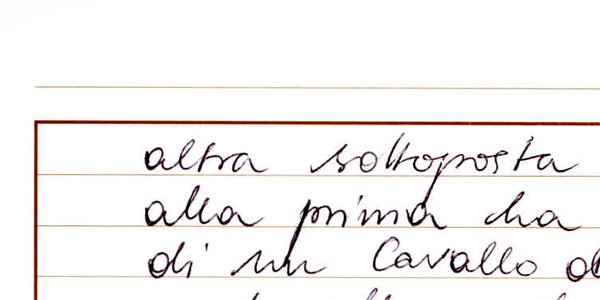 altra sottoposta
alla prima ha
di un Cavallo